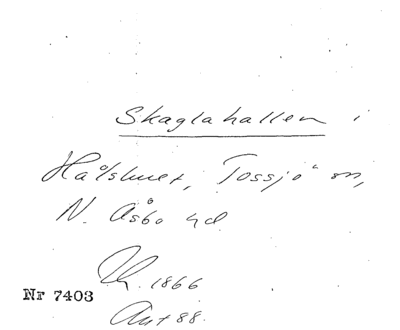 Skaglahallen i
Hålshuet, Tossjö sn,
N. Åsbo hd.
1866
Nr 7403
Ant 88.